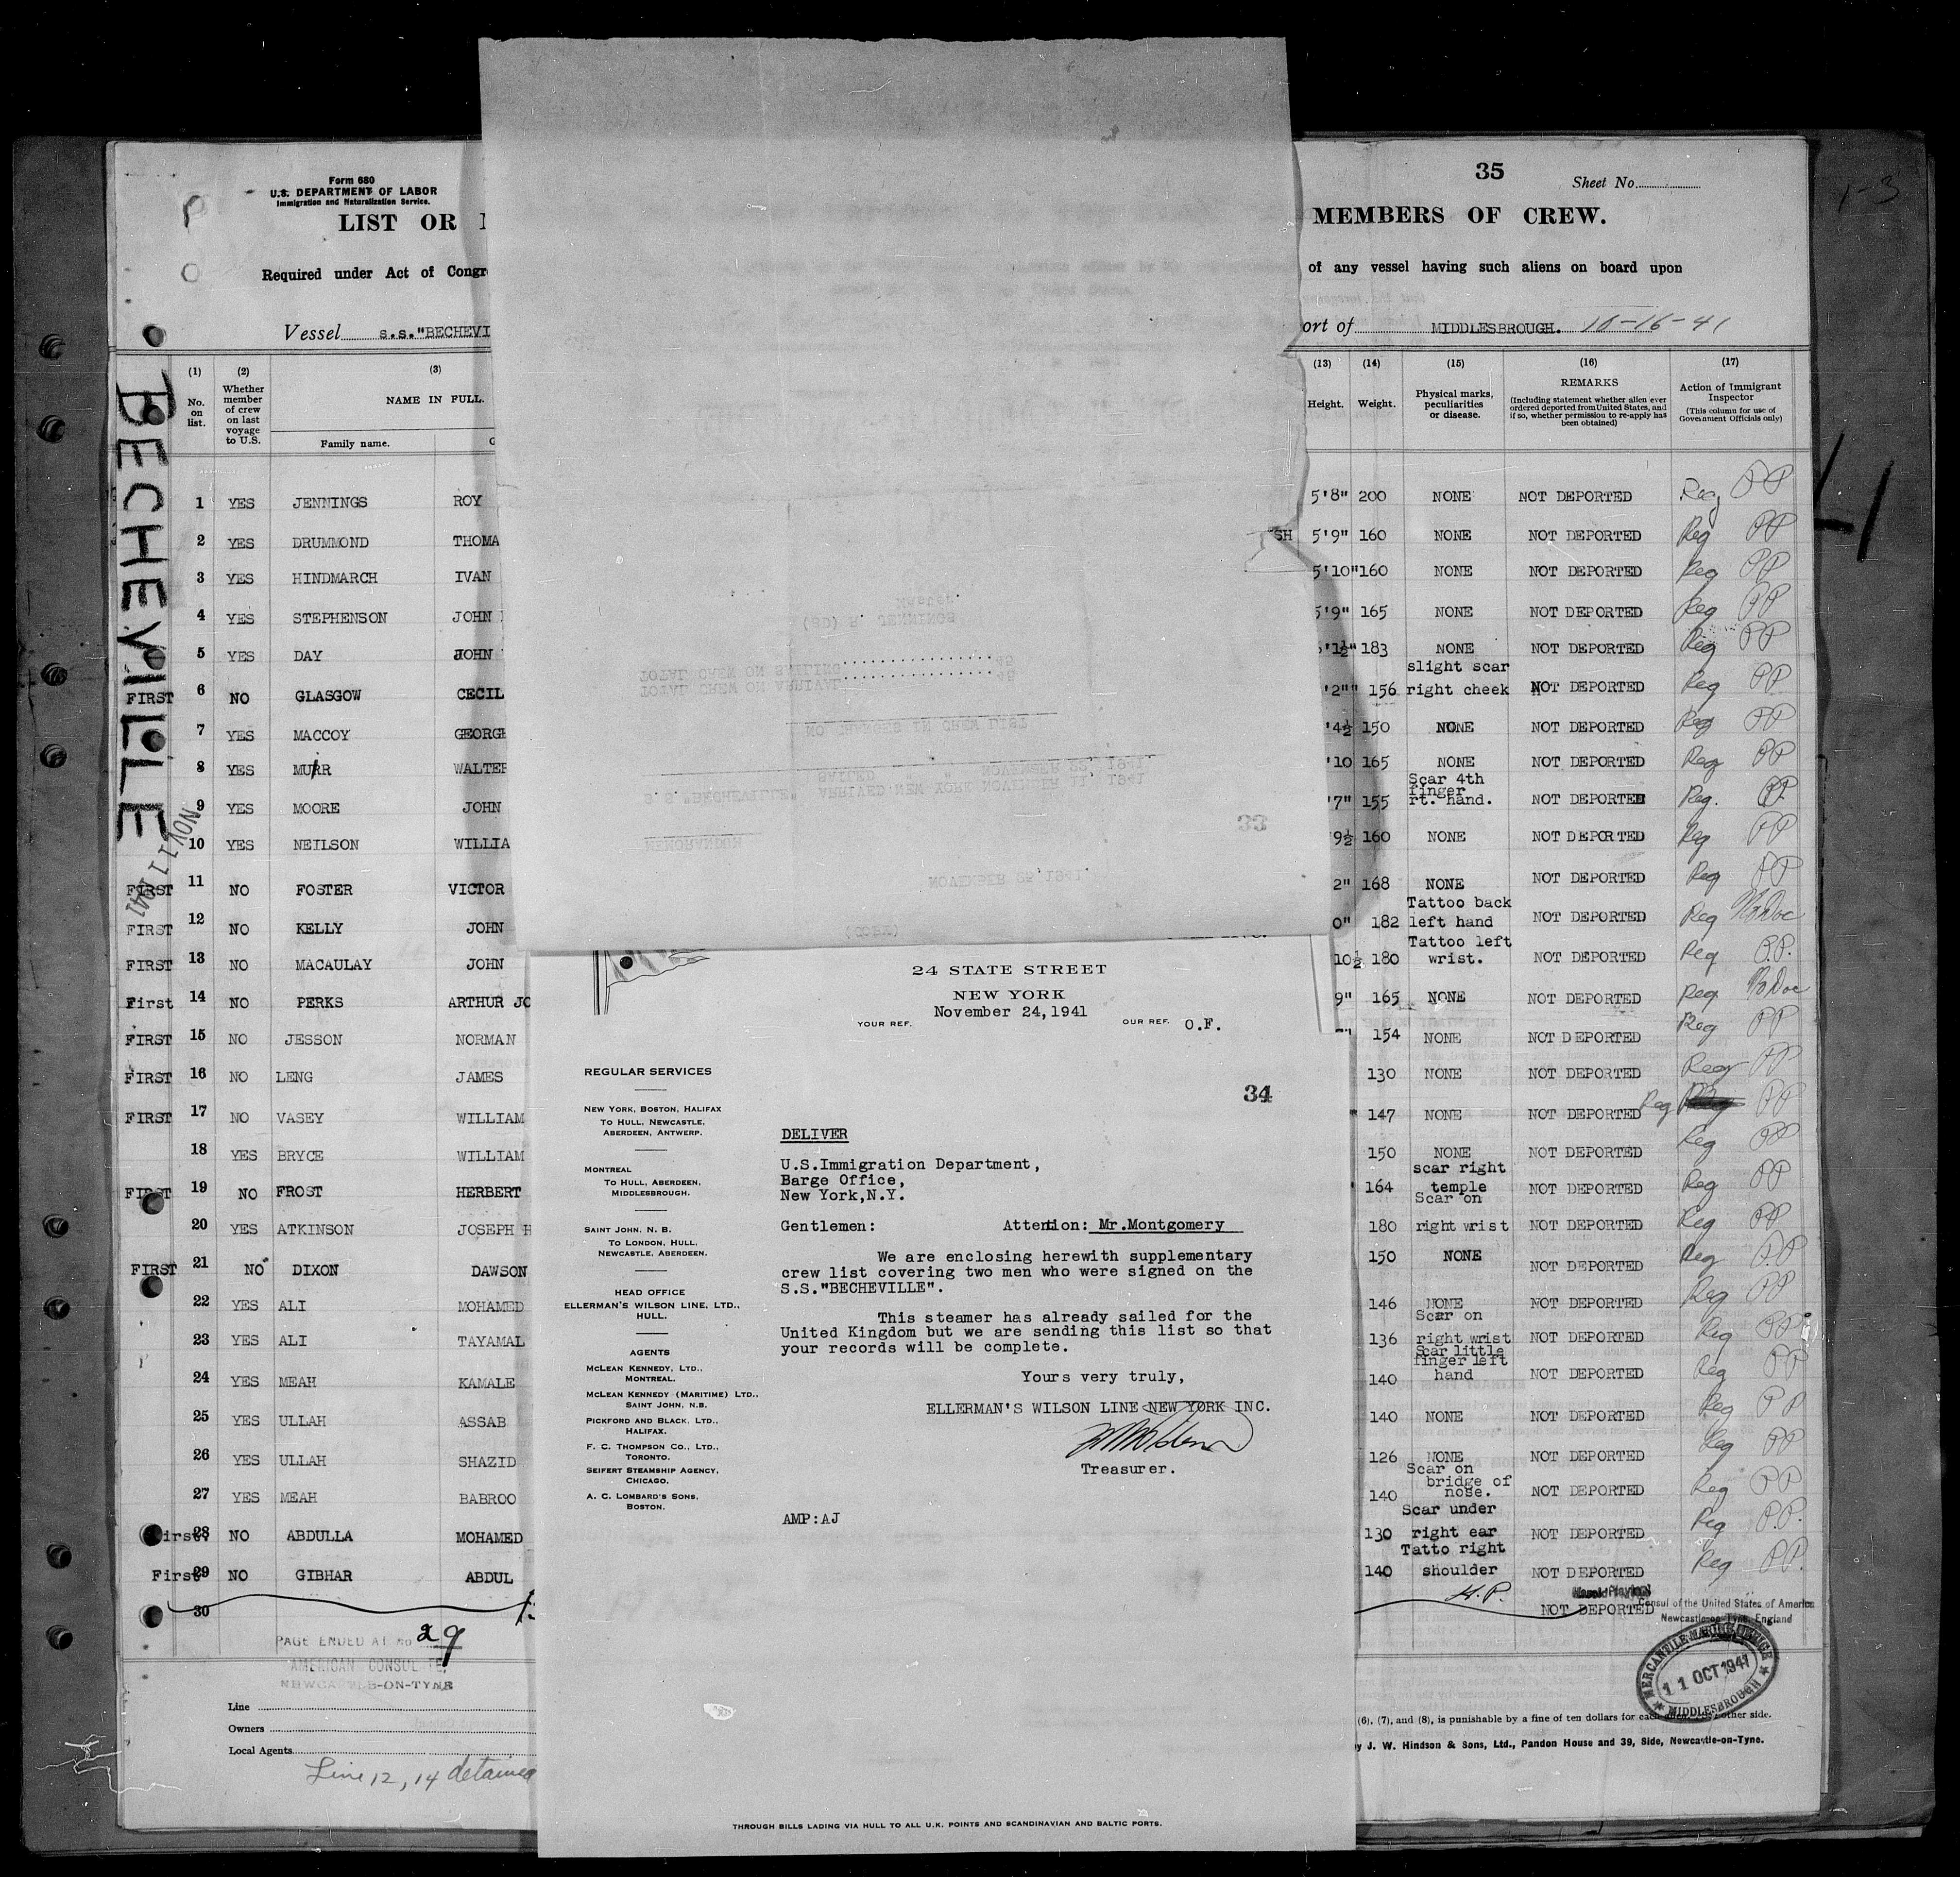 35
Sheet No.
Form 680
U.S. DEPARTMENT OF LABOR
Immigration and Naturalization Service.
LIST OR
MEMBERS OF CREW.
Required under Act of Congre
of any vessel having such aliens on board upon
Vessel s.s."BECHEVI
ort of MIDDLESBROUGH. 10-16-41
1-3
BECHEVILLE
NOV 11 1941
(1) (2) (3) (13) (14) (15) (16) (17)
No. on list.
Whether member of crew on last voyage to U.S.
NAME IN FULL.
Family name.
Height. Weight.
Physical marks, peculiarities or disease.
REMARKS
(Including statement whether alien ever ordered deported from United States, and if so, whether permission to re-apply has been obtained)
Action of Immigrant Inspector
(This column for use of Government Officials only)
1 YES JENNINGS ROY 5'8" 200 NONE NOT DEPORTED Reg PP
2 YES DRUMMOND THOMA SH 5'9" 160 NONE NOT DEPORTED Reg PP
3 YES HINDMARCH IVAN 5'10" 160 NONE NOT DEPORTED Reg PP
4 YES STEPHENSON JOHN 5'9" 165 NONE NOT DEPORTED Reg PP
5 YES DAY JOHN '1½" 183 NONE NOT DEPORTED Reg PP
FIRST 6 NO GLASGOW CECIL '2" 156 slight scar right cheek NOT DEPORTED Reg PP
7 YES MACCOY GEORGE '4½ 150 NONE NOT DEPORTED Reg PP
8 YES MURR WALTER '10 165 NONE NOT DEPORTED Reg PP
9 YES MOORE JOHN '7" 155 Scar 4th finger rt. hand. NOT DEPORTED Reg. PP.
10 YES NEILSON WILLIA 9½ 160 NONE NOT DEPORTED Reg PP
FIRST 11 NO FOSTER VICTOR 2" 168 NONE NOT DEPORTED Reg PP
FIRST 12 NO KELLY JOHN 0" 182 Tattoo back left hand NOT DEPORTED Reg No Doc
FIRST 13 NO MACAULAY JOHN 10½ 180 Tattoo left wrist. NOT DEPORTED Reg P.P.
First 14 NO PERKS ARTHUR JO 9" 165 NONE NOT DEPORTED Reg No Doc
FIRST 15 NO JESSON NORMAN 154 NONE NOT DEPORTED Reg PP
FIRST 16 NO LENG JAMES 130 NONE NOT DEPORTED Reg PP
FIRST 17 NO VASEY WILLIAM 147 NONE NOT DEPORTED Reg PP
18 YES BRYCE WILLIAM 150 NONE NOT DEPORTED Reg PP
FIRST 19 NO FROST HERBERT 164 scar right temple NOT DEPORTED Reg PP
20 YES ATKINSON JOSEPH H 180 Scar on right wrist NOT DEPORTED Reg PP
FIRST 21 NO DIXON DAWSON 150 NONE NOT DEPORTED Reg P.P
22 YES ALI MOHAMED 146 NONE NOT DEPORTED Reg PP
23 YES ALI TAYAMAL 136 Scar on right wrist NOT DEPORTED Reg PP
24 YES MEAH KAMALE 140 Scar little finger left hand NOT DEPORTED Reg PP
25 YES ULLAH ASSAB 140 NONE NOT DEPORTED Reg PP
26 YES ULLAH SHAZID 126 NONE NOT DEPORTED Reg PP
27 YES MEAH BABROO 140 Scar on bridge of nose. NOT DEPORTED Reg PP
First 28 NO ABDULLA MOHAMED 130 Scar under right ear NOT DEPORTED Reg P.P.
First 29 NO GIBHAR ABDUL 140 Tatto right shoulder NOT DEPORTED Reg PP.
30 H.P. NOT DEPORTED
Consul of the United States of America
Newcastle-on-Tyne, England
PAGE ENDED AT No 29
AMERICAN CONSULATE,
NEWCASTLE-ON-TYNE
MERCANTILE MARINE OFFICE
11 OCT 1941
MIDDLESBROUGH
Line
Owners
Local Agents
(6), (7), and (8), is punishable by a fine of ten dollars for each other side.
y J. W. Hindson & Sons, Ltd., Pandon House and 39, Side, Newcastle-on-Tyne.
Line 12, 14 detained
(SD) R. JENNINGS
Master
TOTAL CREW ON SAILING 45
TOTAL CREW ON ARRIVAL 45
NO CHANGES IN CREW LIST
SAILED " " NOVEMBER 22, 1941
S.S."BECHEVILLE" ARRIVED NEW YORK NOVEMBER 11, 1941
33
MEMORANDUM
NOVEMBER 25, 1941
(COPY)
24 STATE STREET
NEW YORK
November 24,1941
YOUR REF.
OUR REF. O.F.
34
REGULAR SERVICES
NEW YORK, BOSTON, HALIFAX
TO HULL, NEWCASTLE,
ABERDEEN, ANTWERP.
MONTREAL
TO HULL, ABERDEEN,
MIDDLESBROUGH.
SAINT JOHN, N. B.
TO LONDON, HULL,
NEWCASTLE, ABERDEEN.
HEAD OFFICE
ELLERMAN'S WILSON LINE, LTD.,
HULL.
AGENTS
MCLEAN KENNEDY, LTD.,
MONTREAL.
MCLEAN KENNEDY (MARITIME) LTD.,
SAINT JOHN, N.B.
PICKFORD AND BLACK, LTD.,
HALIFAX.
F. C. THOMPSON CO., LTD.,
TORONTO.
SEIFERT STEAMSHIP AGENCY,
CHICAGO.
A. C. LOMBARD'S SONS,
BOSTON.
DELIVER
U.S.Immigration Department,
Barge Office,
New York,N.Y.
Gentlemen: Attention: Mr.Montgomery
We are enclosing herewith supplementary
crew list covering two men who were signed on the
S.S."BECHEVILLE".
This steamer has already sailed for the
United Kingdom but we are sending this list so that
your records will be complete.
Yours very truly,
ELLERMAN'S WILSON LINE NEW YORK INC.
Treasurer.
AMP:AJ
THROUGH BILLS LADING VIA HULL TO ALL U.K. POINTS AND SCANDINAVIAN AND BALTIC PORTS.